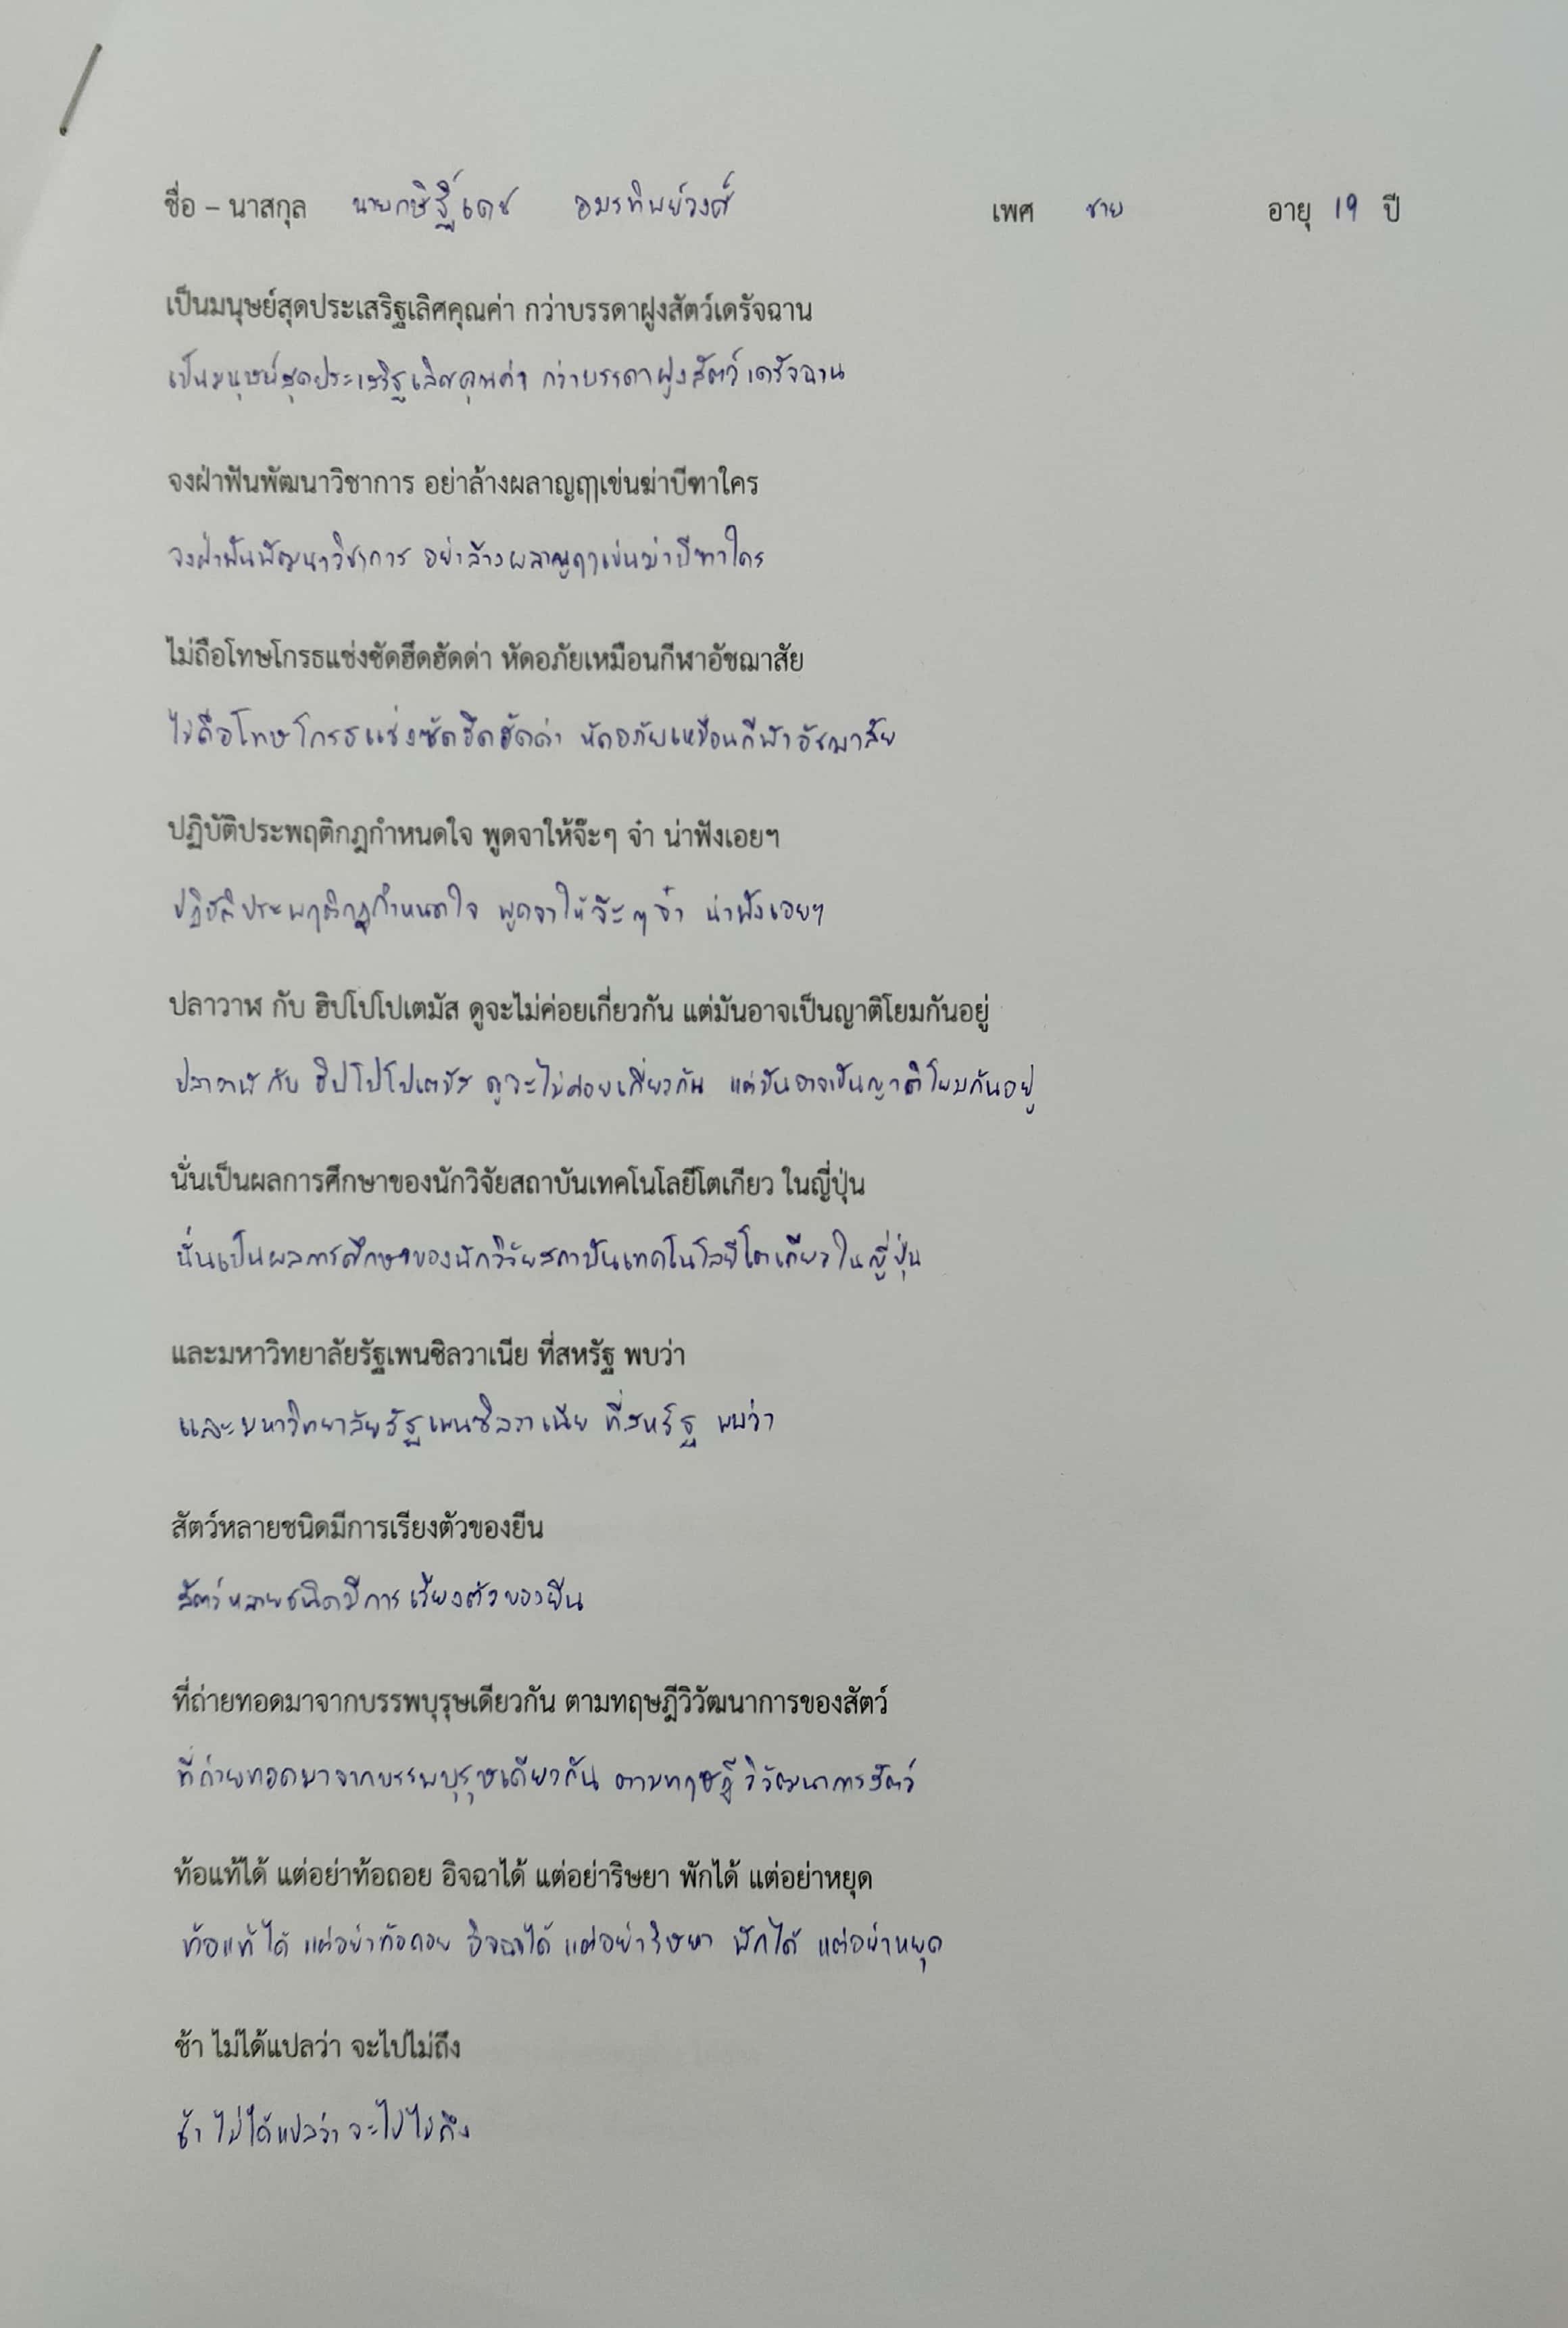 ชื่อ – นาสกุล นายกษิฐิ์เดช อมรทิพย์วงศ์ เพศ ชาย อายุ 19 ปี
เป็นมนุษย์สุดประเสริฐเลิศคุณค่า กว่าบรรดาฝูงสัตว์เดรัจฉาน
เป็นมนุษย์สุดประเสริฐเลิศคุณค่า กว่าบรรดาฝูงสัตว์เดรัจฉาน
จงฝ่าฟันพัฒนาวิชาการ อย่าล้างผลาญฤๅเข่นฆ่าบีฑาใคร
จงฝ่าฟันพัฒนาวิชาการ อย่าล้างผลาญฤๅเข่นฆ่าบีฑาใคร
ไม่ถือโทษโกรธแช่งซัดฮึดฮัดด่า หัดอภัยเหมือนกีฬาอัชฌาสัย
ไม่ถือโทษโกรธแช่งซัดฮึดฮัดด่า หัดอภัยเหมือนกีฬาอัชฌาสัย
ปฏิบัติประพฤติกฎกำหนดใจ พูดจาให้จ๊ะๆ จ๋า น่าฟังเอยฯ
ปฏิบัติประพฤติกฎกำหนดใจ พูดจาให้จ๊ะๆ จ๋า น่าฟังเอยฯ
ปลาวาฬ กับ ฮิปโปโปเตมัส ดูจะไม่ค่อยเกี่ยวกัน แต่มันอาจเป็นญาติโยมกันอยู่
ปลาวาฬ กับ ฮิปโปโปเตมัส ดูจะไม่ค่อยเกี่ยวกัน แต่มันอาจเป็นญาติโยมกันอยู่
นั่นเป็นผลการศึกษาของนักวิจัยสถาบันเทคโนโลยีโตเกียว ในญี่ปุ่น
นั่นเป็นผลการศึกษาของนักวิจัยสถาบันเทคโนโลยีโตเกียวในญี่ปุ่น
และมหาวิทยาลัยรัฐเพนซิลวาเนีย ที่สหรัฐ พบว่า
และมหาวิทยาลัยรัฐเพนซิลวาเนีย ที่สหรัฐ พบว่า
สัตว์หลายชนิดมีการเรียงตัวของยีน
สัตว์หลายชนิดมีการเรียงตัวของยีน
ที่ถ่ายทอดมาจากบรรพบุรุษเดียวกัน ตามทฤษฎีวิวัฒนาการของสัตว์
ที่ถ่ายทอดมาจากบรรพบุรุษเดียวกัน ตามทฤษฎีวิวัฒนาการสัตว์
ท้อแท้ได้ แต่อย่าท้อถอย อิจฉาได้ แต่อย่าริษยา พักได้ แต่อย่าหยุด
ท้อแท้ได้ แต่อย่าท้อถอย อิจฉาได้ แต่อย่าริษยา พักได้ แต่อย่าหยุด
ช้า ไม่ได้แปลว่า จะไปไม่ถึง
ช้า ไม่ได้แปลว่า จะไปไม่ถึง